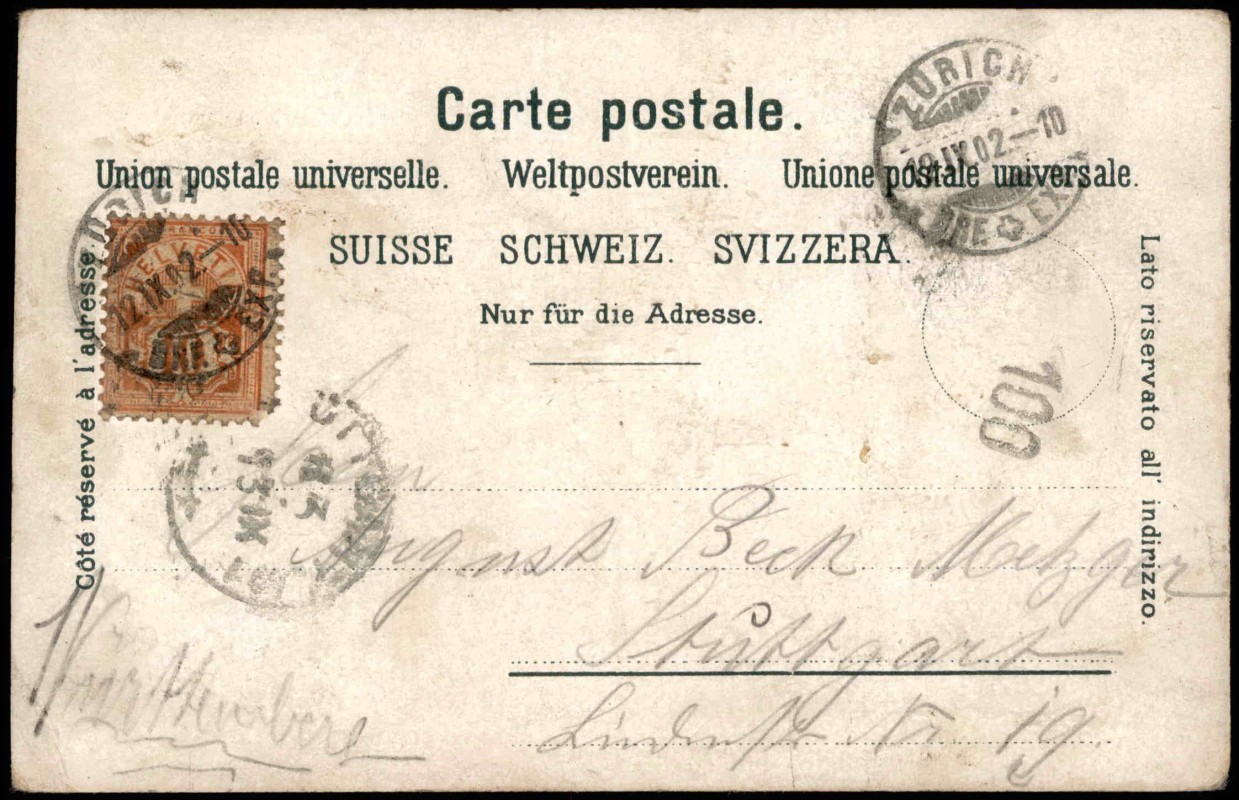 Carte postale.
Union postale universelle. Weltpostverein. Unione postale universale.
SUISSE SCHWEIZ. SVIZZERA.
Nur für die Adresse.
Côté réservé à l'adresse.
Lato riservato all' indirizzo.
ZÜRICH
12.IX.02.–10
BRF. EXP.
HELVETIA
ZÜRICH
IX.02.–10
EXP.
100
13 IX
Herrn
August Beck Metzger
Stuttgart
Lindenstr Nr. 19.
Württemberg